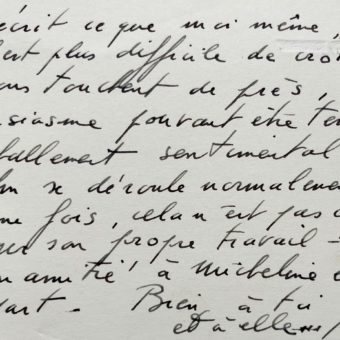 écrit ce que moi même,
est plus difficile de cro
ous touchent de près,
siasme pouvant être te
tallement sentimental
lm se déroule normaleme
me fois, cela n'est pas
sur son propre travail -
n amitié à Micheline e
part - Bien à toi
et à elle